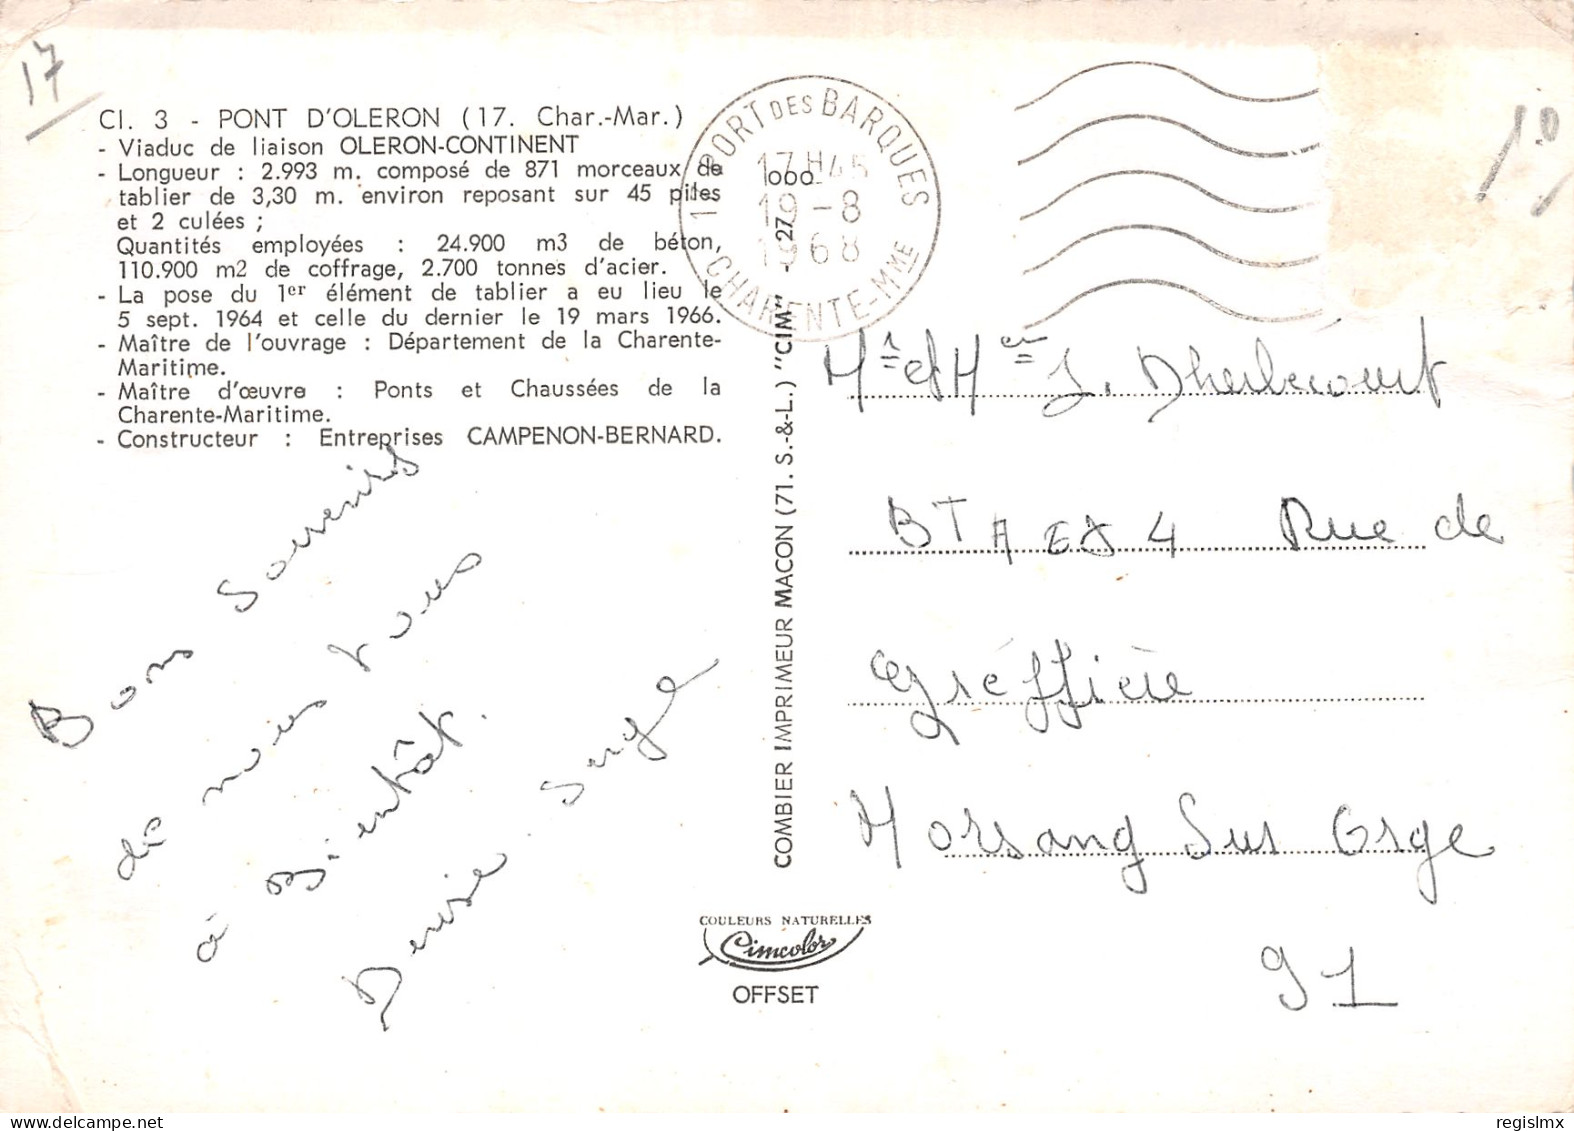 17
Cl. 3 - PONT D'OLERON (17. Char.-Mar.)
- Viaduc de liaison OLERON-CONTINENT
- Longueur : 2.993 m. composé de 871 morceaux de
tablier de 3,30 m. environ reposant sur 45 piles
et 2 culées ;
Quantités employées : 24.900 m3 de béton,
110.900 m2 de coffrage, 2.700 tonnes d'acier.
- La pose du 1er élément de tablier a eu lieu le
5 sept. 1964 et celle du dernier le 19 mars 1966.
- Maître de l'ouvrage : Département de la Charente-
Maritime.
- Maître d'œuvre : Ponts et Chaussées de la
Charente-Maritime.
- Constructeur : Entreprises CAMPENON-BERNARD.
Bons Souvenirs
de nous tous
à Bientôt.
Denise Serge
COMBIER IMPRIMEUR MACON (71. S.-&-L.) "CIM" - 27
COULEURS NATURELLES
Cimcolor
OFFSET
17 PORT DES BARQUES
17H45
19-8
1968
CHARENTE-MME
Mr et M J. Dherbécourt
BTA 4 Rue de
Gréffière
Morsang Sur Orge
91
regislmx